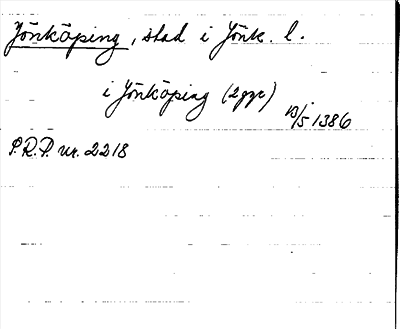 Jönköping, stad i Jönk. l.
i Jönköping (2ggr) 13/5 1386
P.R.P. nr. 2218